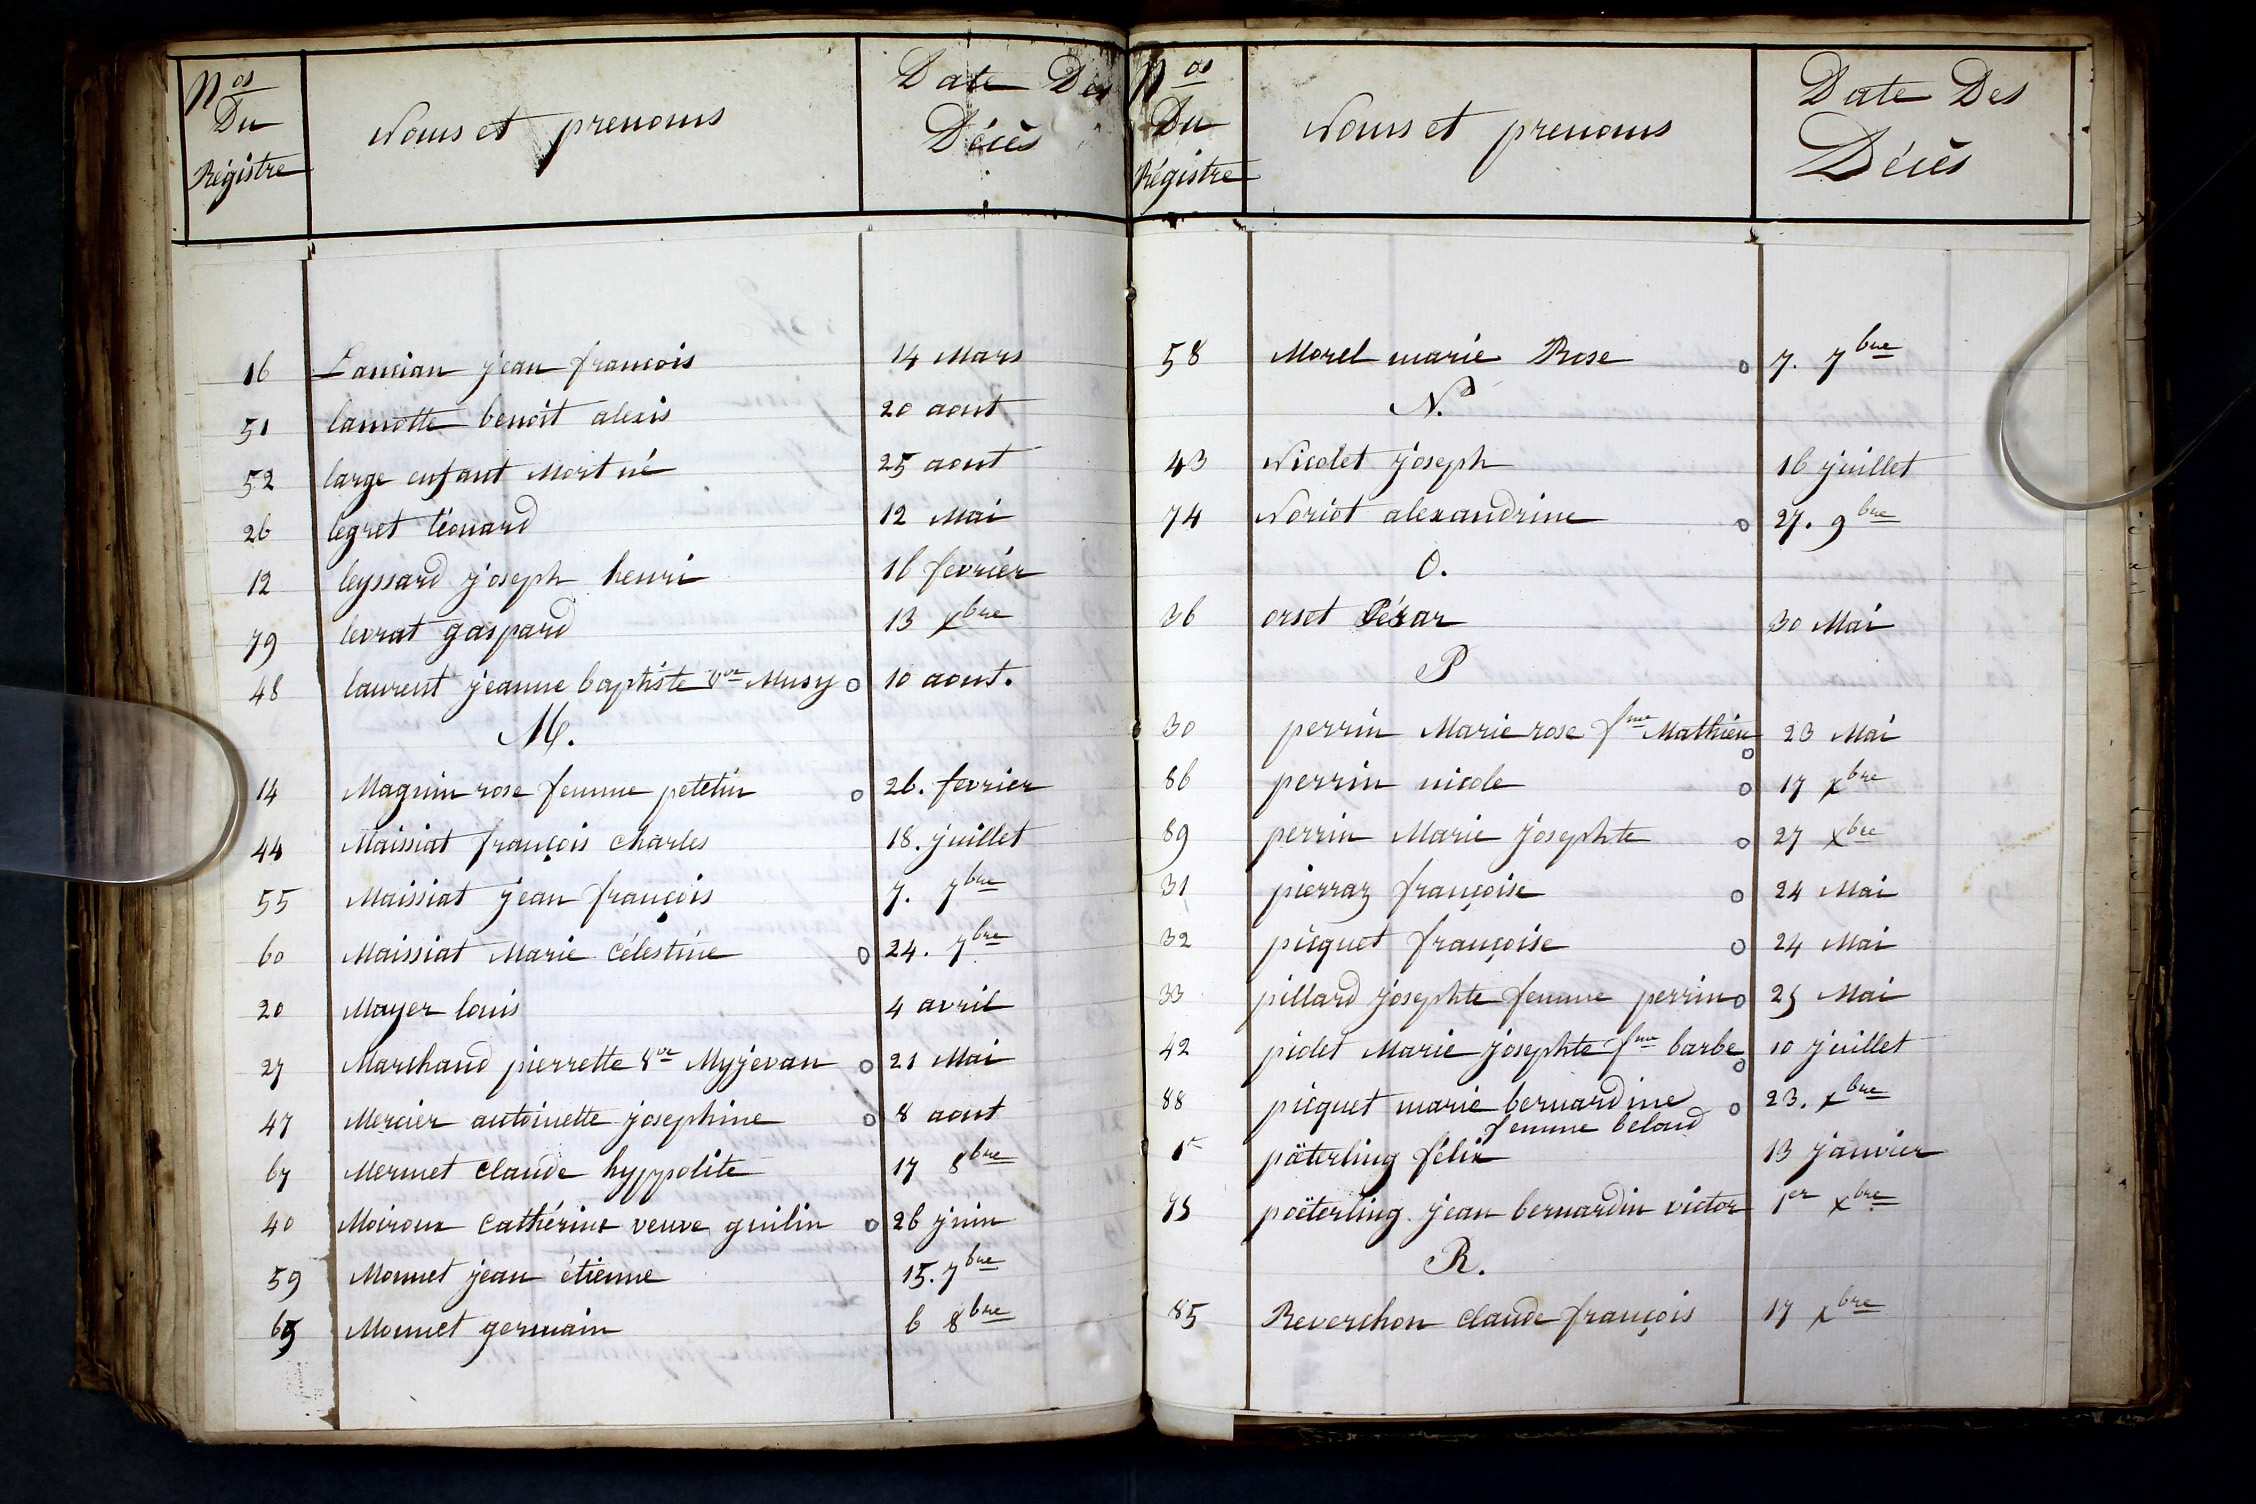 Nos Du Régistre
Noms et prenoms
Date Des Décès
16 Lancian jean francois 14 Mars
51 lamotte benoit alexis 20 aout
52 large enfant Mort né 25 aout
26 legret léonard 12 Mai
12 leyssard joseph henri 16 fevriér
79 levrat gaspard 13 xbre
48 laurent jeanne baptiste Vve Musy o 10 aout.
M.
14 Magnin rose femme petetin o 26. fevrier
44 Maissiat françois charles 18. juillet
55 Maissiat jean françois 7. 7bre
60 Maissiat Marie Célestine o 24. 7bre
20 Mayer louis 4 avril
27 Marchand pierrette Vve Myjevan o 21 Mai
47 Mercier antoinette josephine o 8 aout
67 Mermet claude hyppolite 17 8bre
40 Moiroux Cathérine veuve guilin o 26 juin
59 Monnet jean étienne 15. 7bre
65 Monnet germain 6 8bre
Nos Du Régistre
Noms et prenoms
Date Des Décès
58 Morel marie Rose o 7. 7bre
N.
43 Nicolet joseph 16 juillet
74 Noriot alexandrine o 27. 9bre
O.
36 orset César 30 Mai
P
30 perrin Marie rose fme Mathieu o 23 Mai
86 perrin nicole o 17 xbre
89 perrin Marie josephte o 27 xbre
31 pierraz françoise o 24 Mai
32 picquet françoise o 24 Mai
33 pillard josephte femme perrin o 25 Mai
42 piolet Marie josephte fme barbe o 10 juillet
88 picquet marie bernardine o 23. xbre
femme beland
1er päterling félix 13 janvier
75 poëterling jean bernardin victor 1er xbre
R.
85 Reverchon claude françois 17 xbre